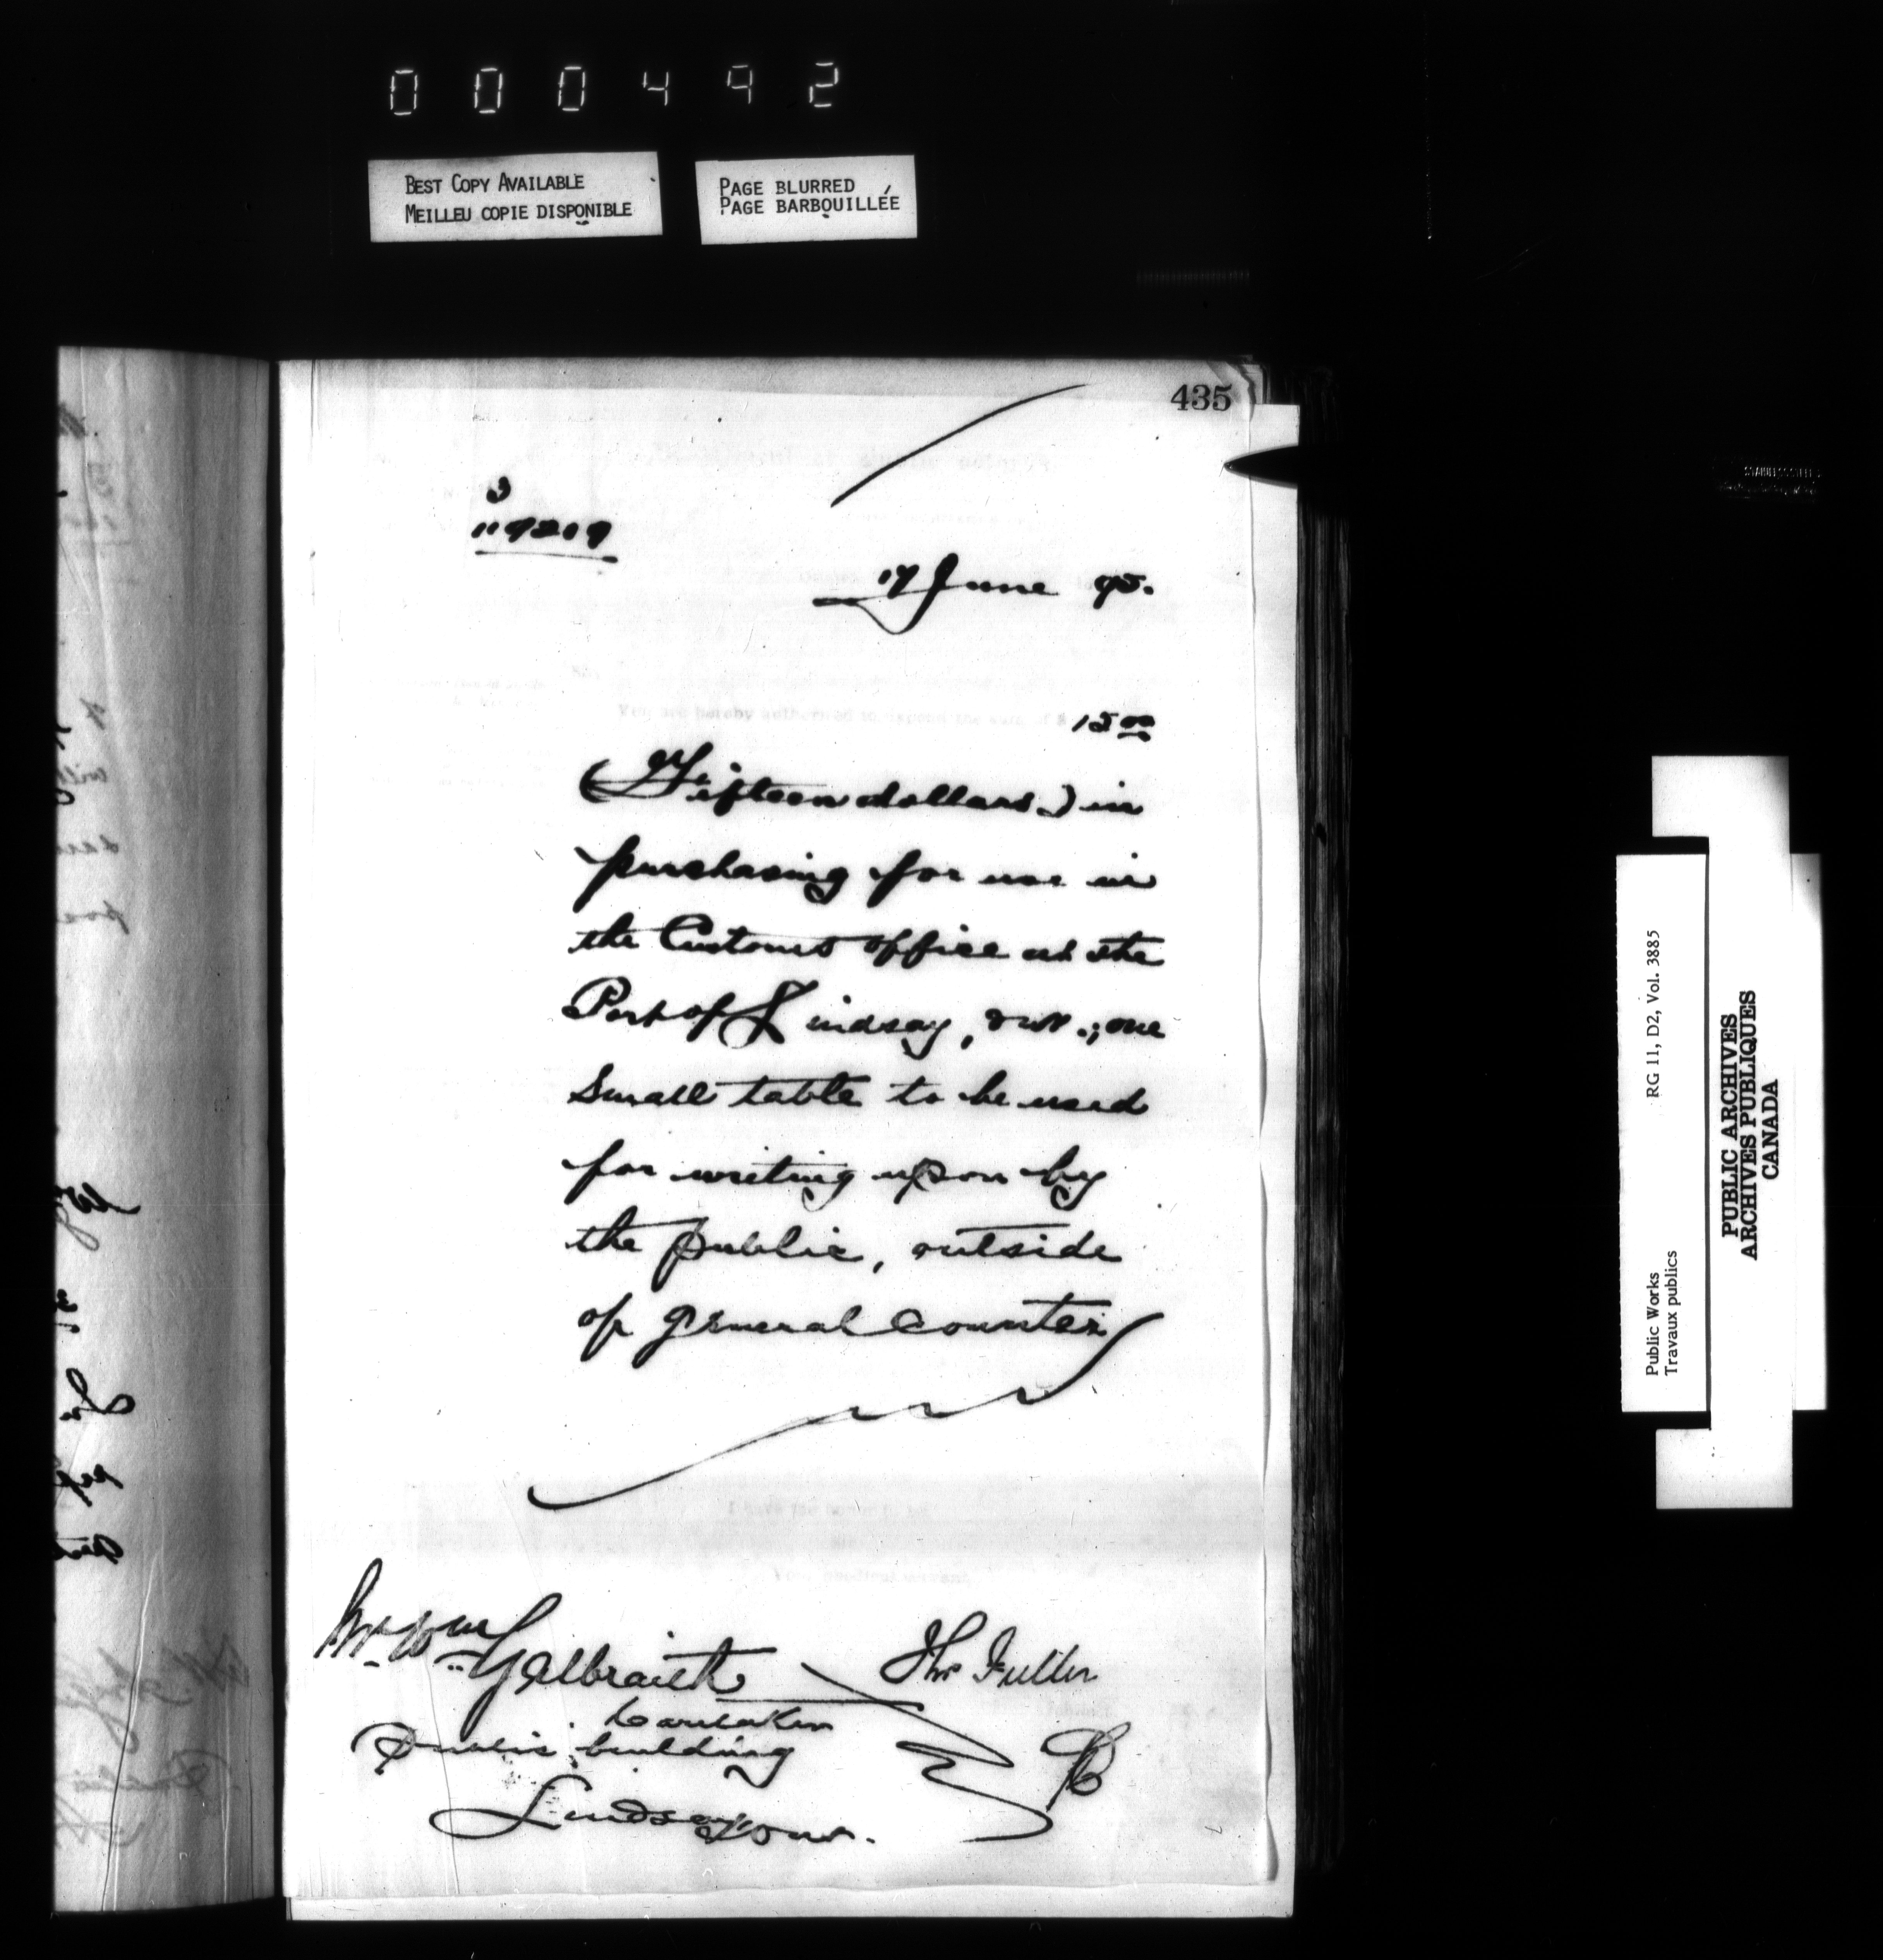 000492
BEST COPY AVAILABLE
MEILLEU COPIE DISPONIBLE
PAGE BLURRED
PAGE BARBOUILLÉE
435
119219
17 June 95.
You are hereby authorized to expend the sum of $
15 00
(Fifteen dollars.) in
purchasing for use in
the Customs office at the
Port of Lindsay, Ont.; one
small table to be used
for writing upon by
the public, outside
of general counter
Mr. Wm Galbraith
Caretaker
Public building
Lindsay Ont.
Thos Fuller
Public Works
Travaux publics
RG 11, D2, Vol. 3885
PUBLIC ARCHIVES
ARCHIVES PUBLIQUES
CANADA